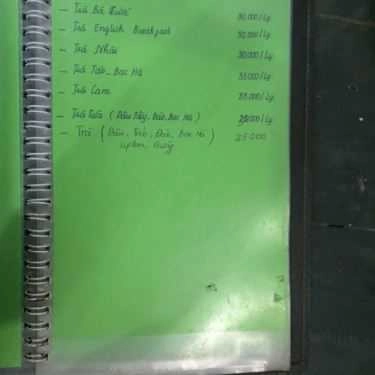 - Trà Bá Tước 30.000/Ly
- Trà English Breakfast 30.000/Ly
- Trà Nhài 30.000/Ly
- Trà Táo - Bạc Hà 35.000/Ly
- Trà Cam 35.000/Ly
- Trà (Dâu Tây, Đào, Bạc Hà) 25.000/Ly
- Trà (Dâu, Táo, Đào, Bạc Hà) 25.000